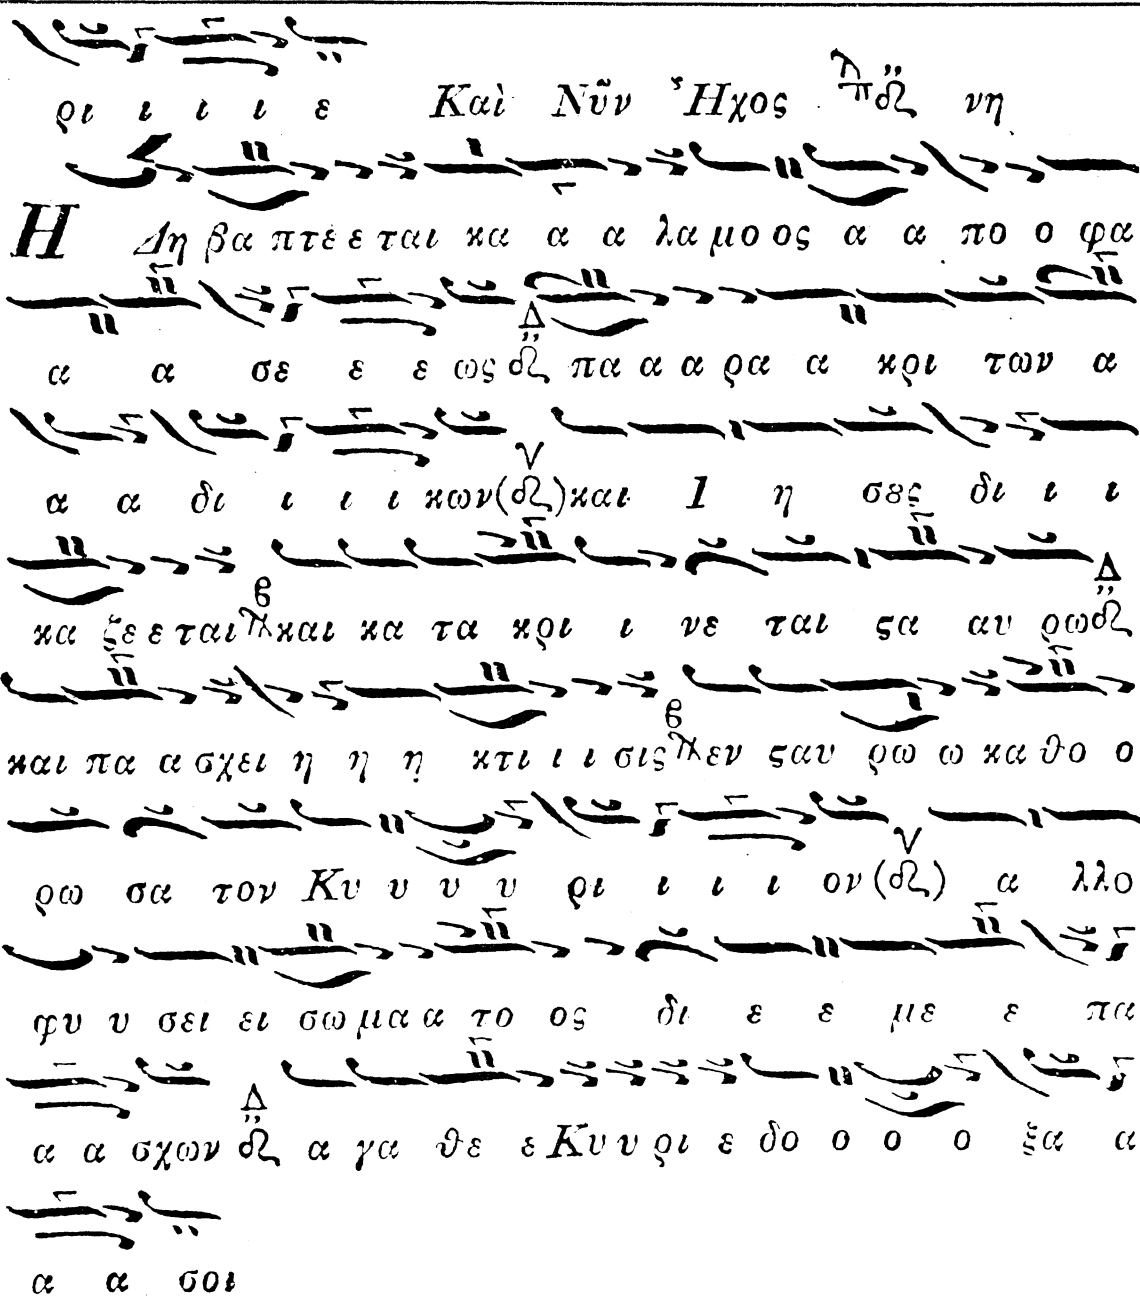 ρι ι ι ι ε Καὶ Νῦν Ἦχος π δι νη
Η Δη βα πτε ε ται κα α α λα μο ος α α πο ο φα
α α σε ε ε ως Δ πα α α ρα α κρι των α
α α δι ι ι ι κων (ν) και Ι η σȣς δι ι ι
κα ζε ε ται β και κα τα κρι ι νε ται ϛα αυ ρω Δ
και πα α σχει η η η κτι ι ι σις β εν ϛαυ ρω ω κα θο ο
ρω σα τον Κυ υ υ υ ρι ι ι ι ον (ν) α λλο
φυ υ σει ει σω μα α το ος δι ε ε με ε πα
α α σχων Δ α γα θε ε Κυ υ ρι ε δο ο ο ο ξα α
α α σοι